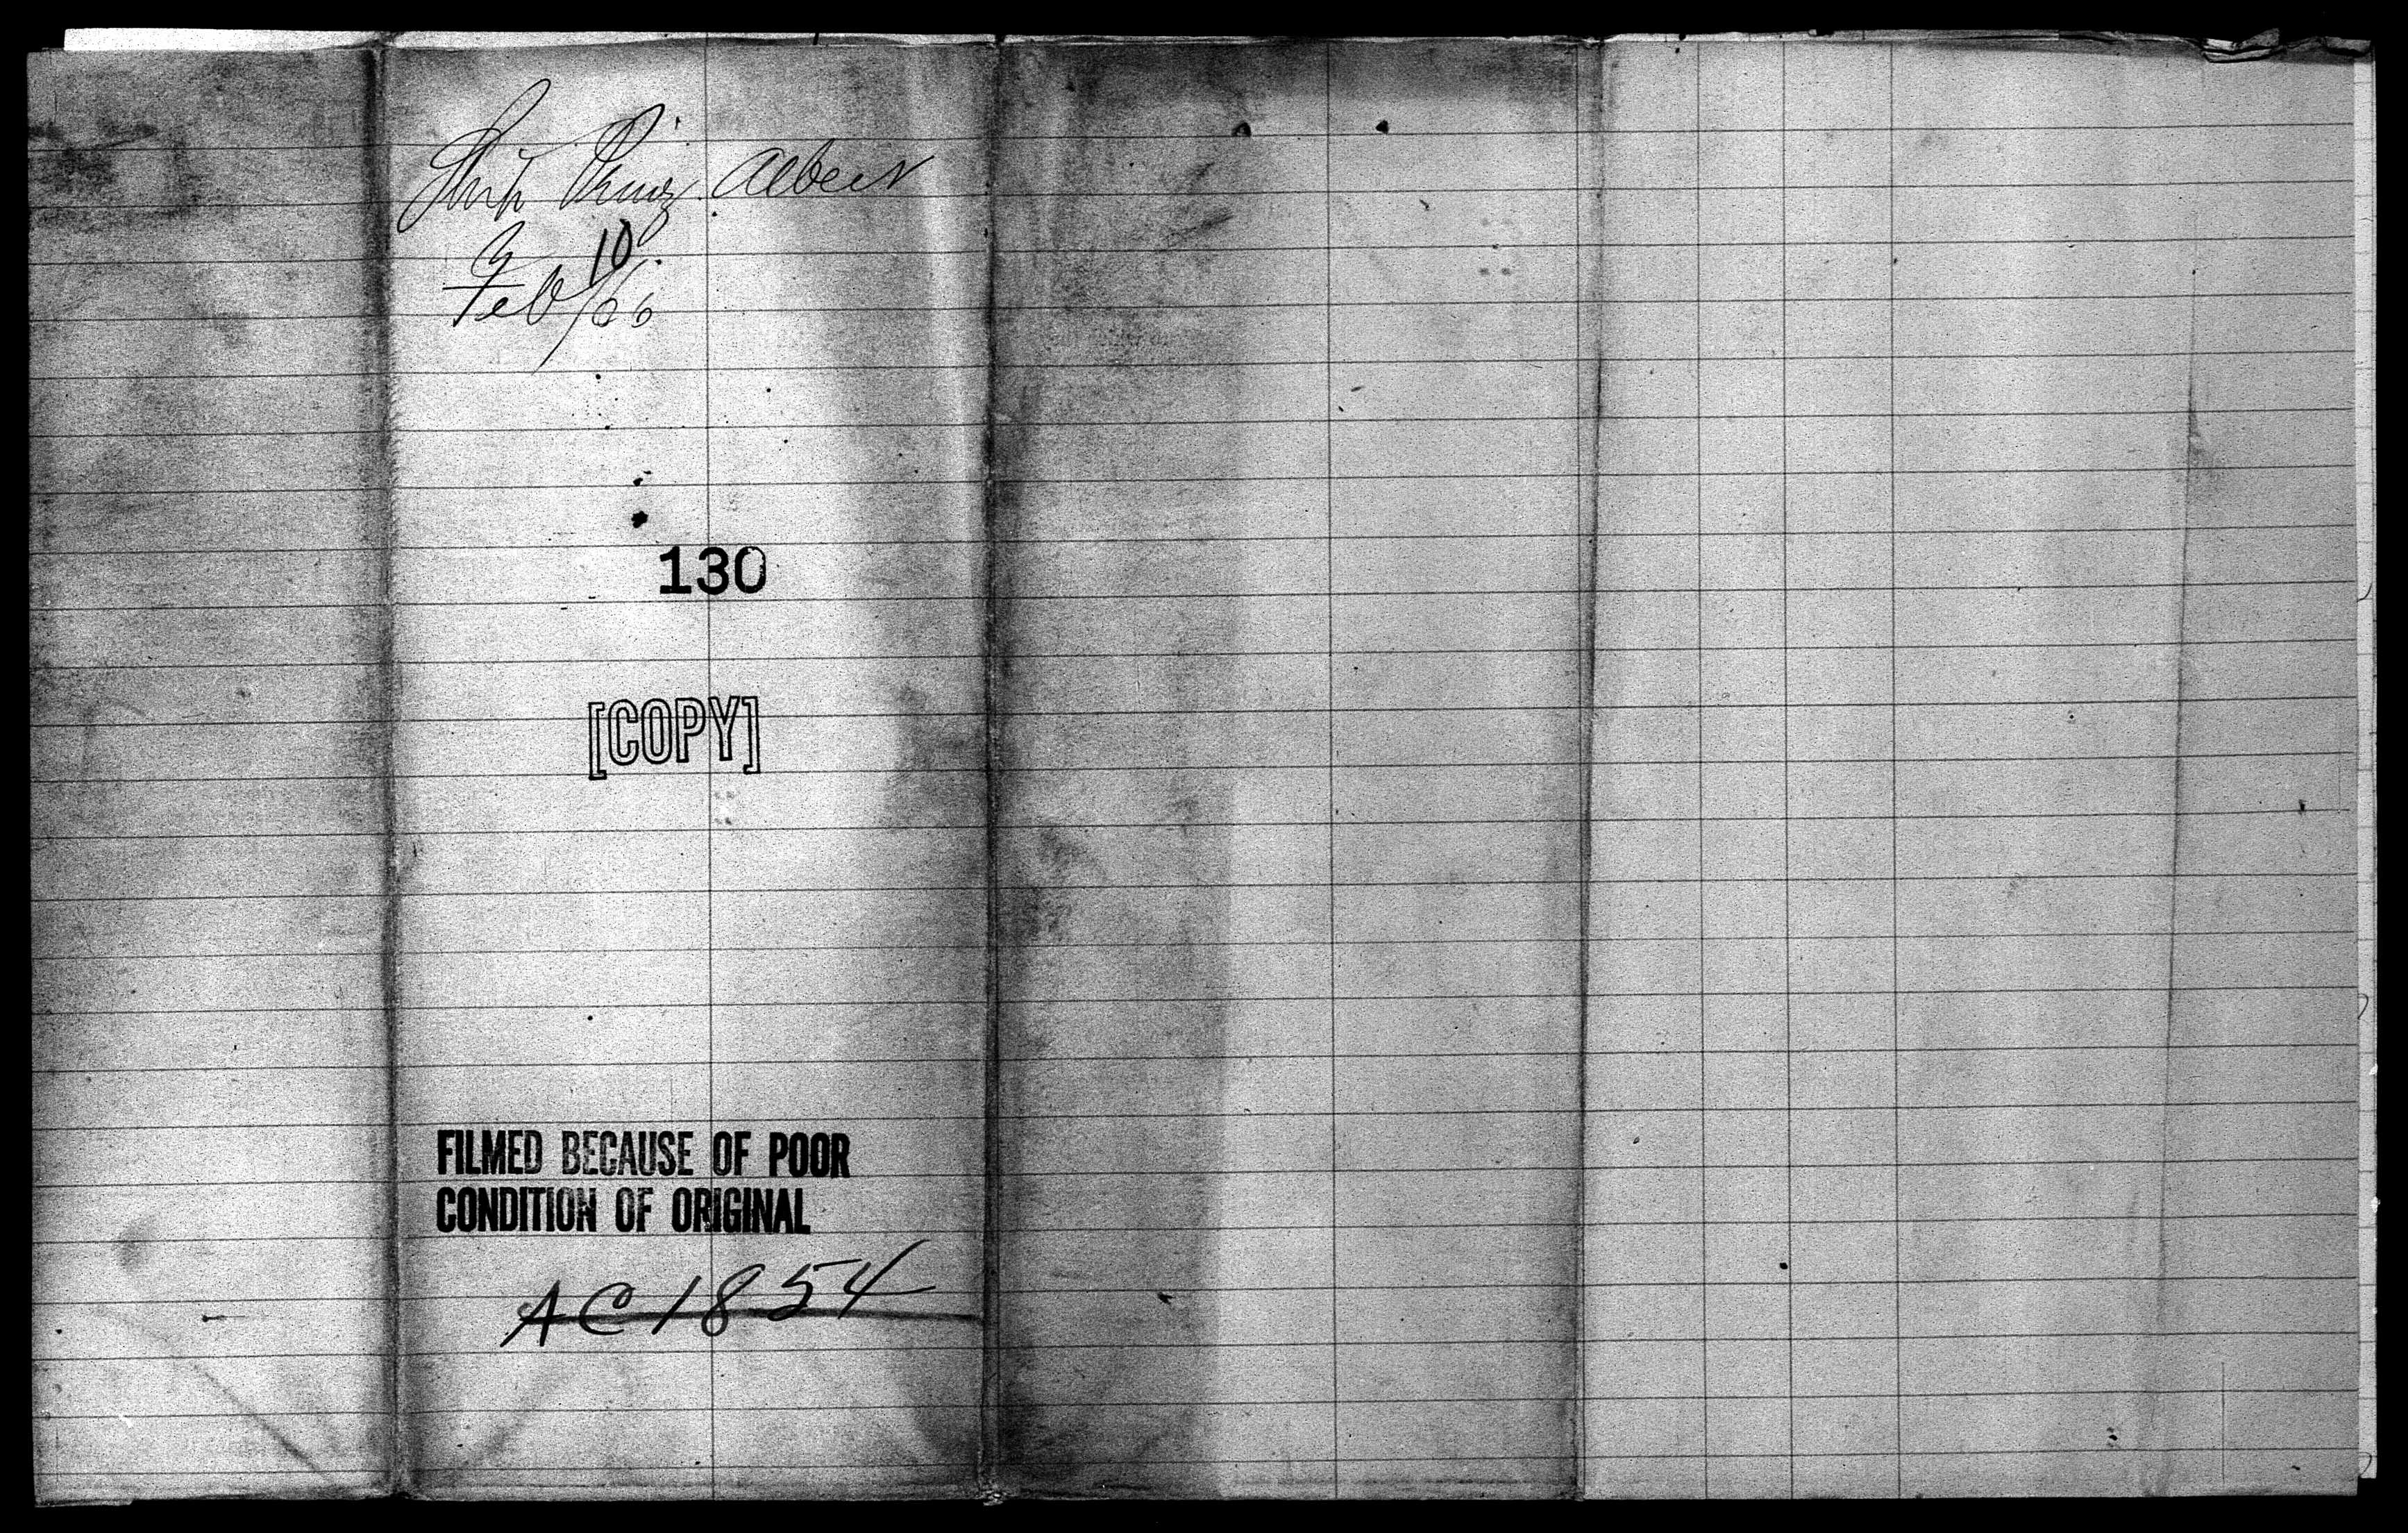 Ship Prinz Albert
10
Feb /66
130
[COPY]
FILMED BECAUSE OF POOR
CONDITION OF ORIGINAL
AC 1854